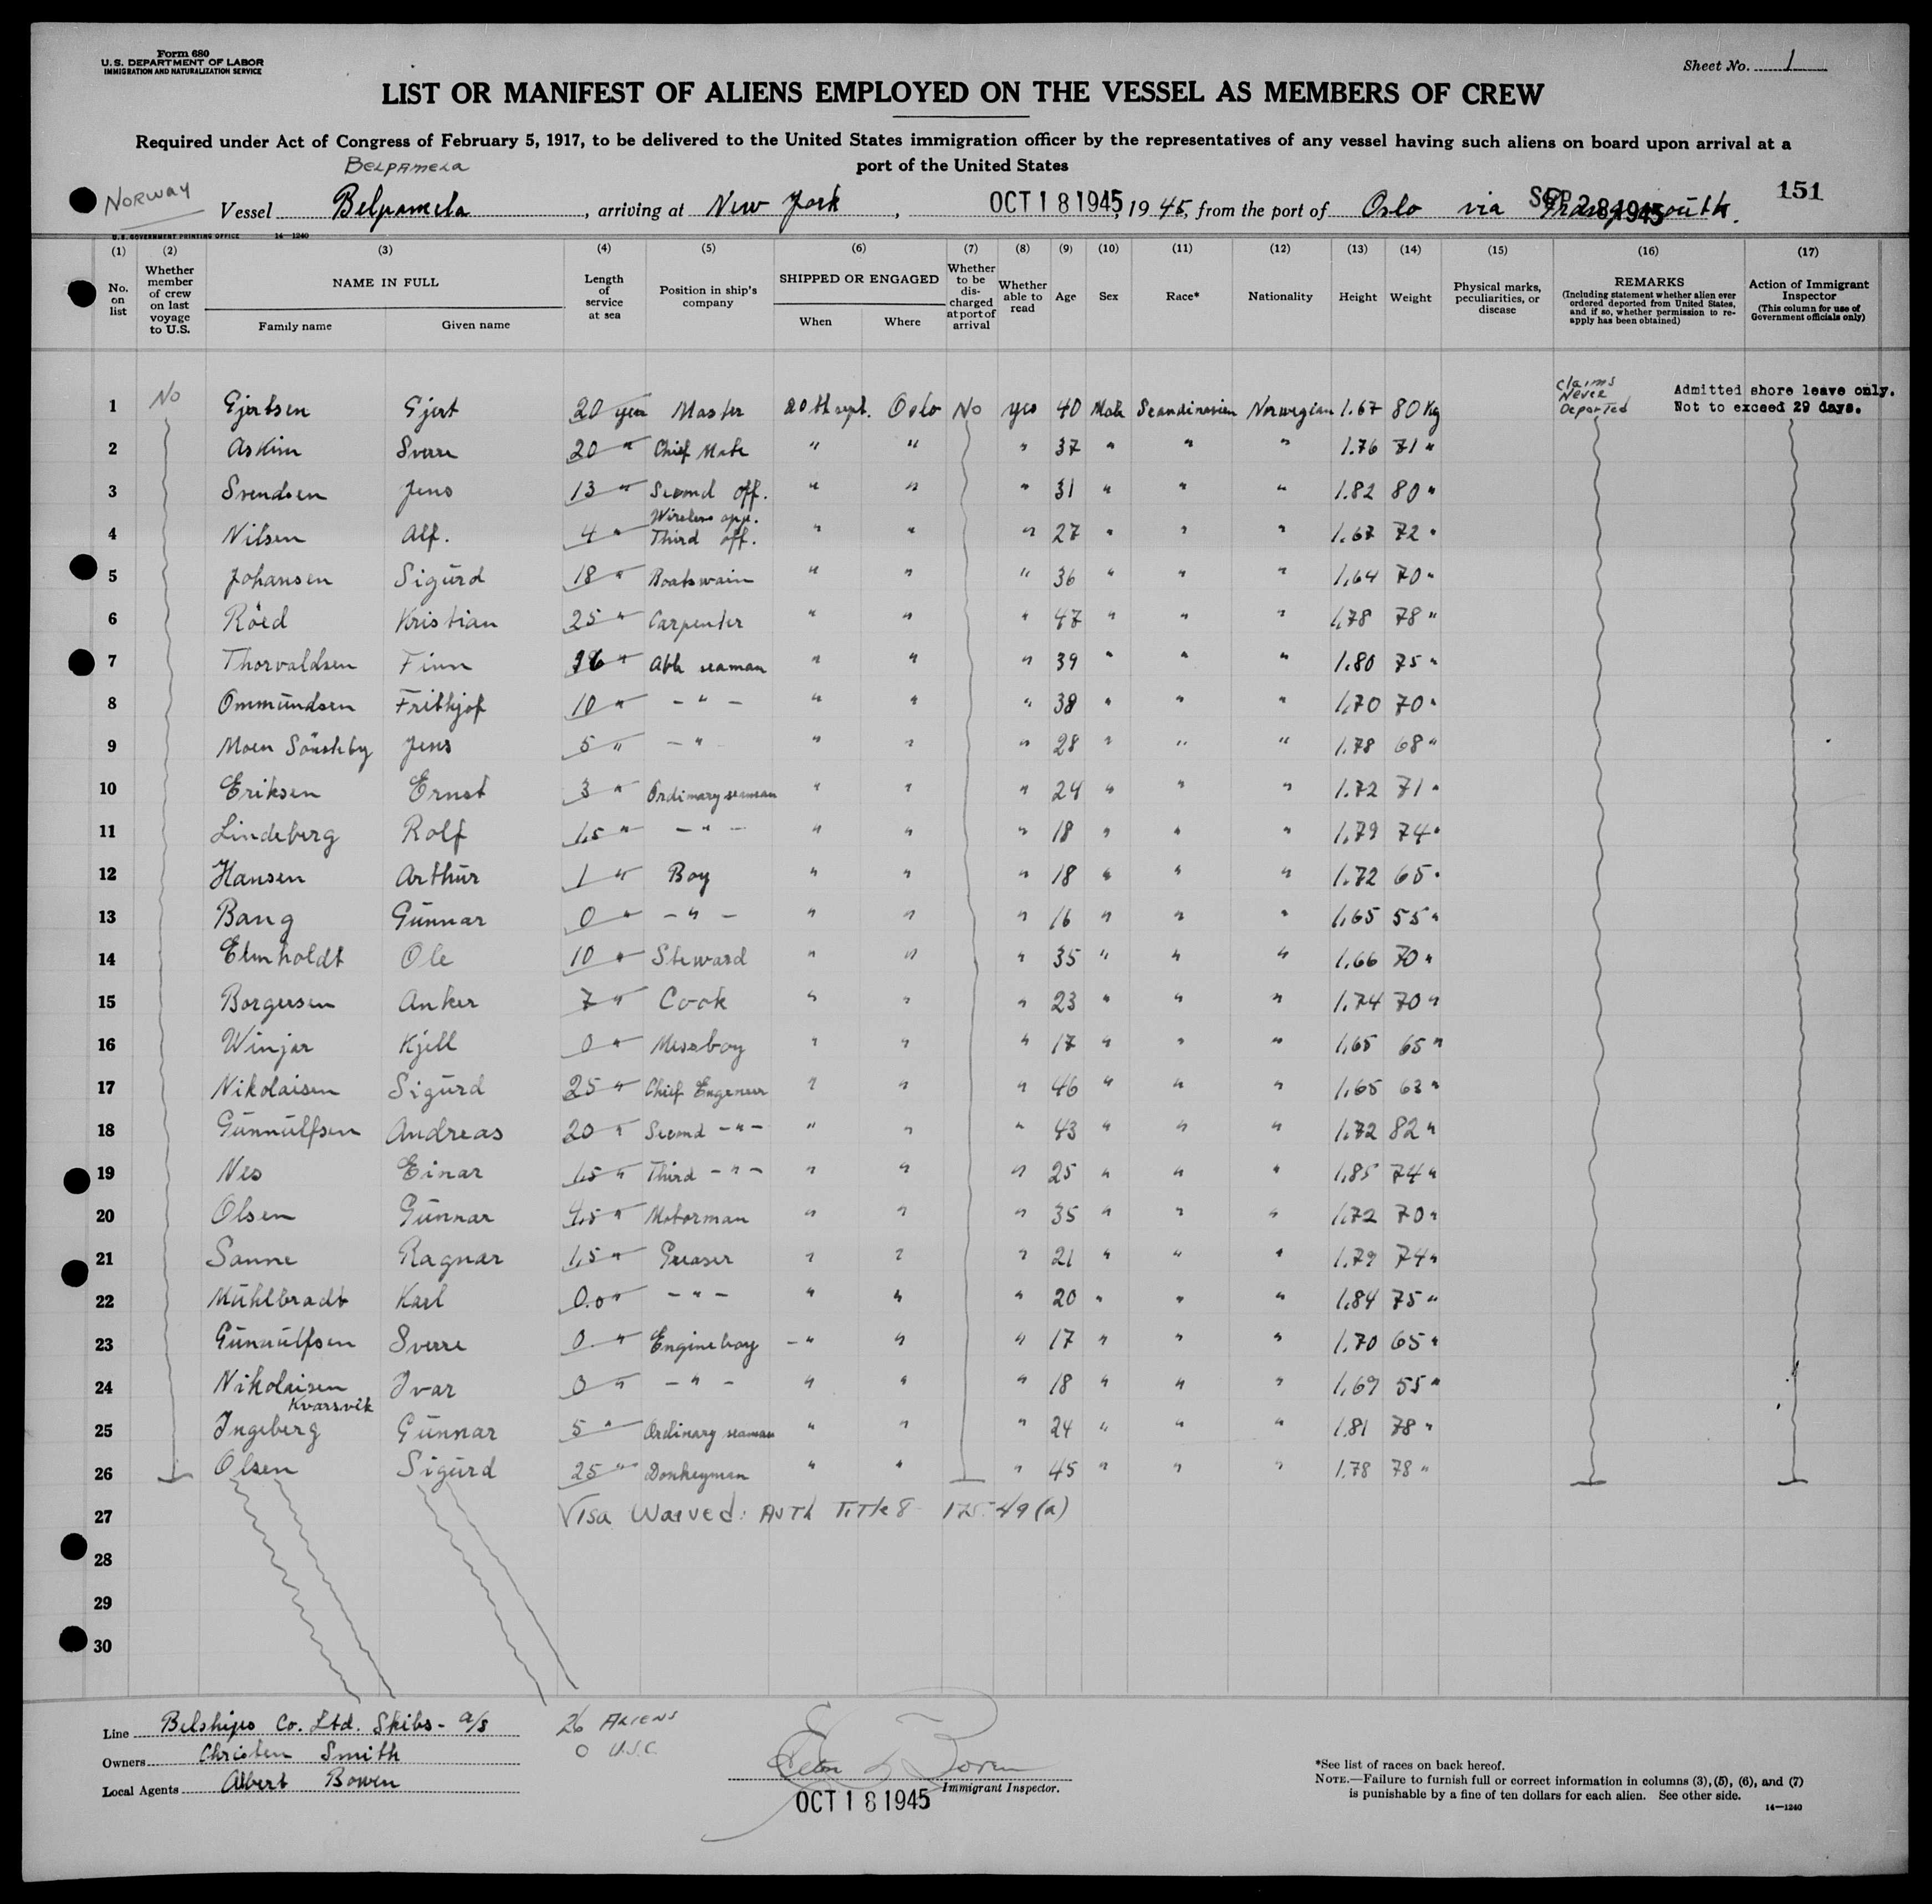 Form 680
U. S. DEPARTMENT OF LABOR
IMMIGRATION AND NATURALIZATION SERVICE
Sheet No. 1
LIST OR MANIFEST OF ALIENS EMPLOYED ON THE VESSEL AS MEMBERS OF CREW
Required under Act of Congress of February 5, 1917, to be delivered to the United States immigration officer by the representatives of any vessel having such aliens on board upon arrival at a
port of the United States
BELPAMELA
NORWAY
Vessel Belpamela, arriving at New York, OCT 18 1945, 1945, from the port of Oslo via SEP 28 1945
151
U. S. GOVERNMENT PRINTING OFFICE 14—1240
(1) (2) (3) (4) (5) (6) (7) (8) (9) (10) (11) (12) (13) (14) (15) (16) (17)
No. on list
Whether member of crew on last voyage to U.S.
NAME IN FULL
Family name Given name
Length of service at sea
Position in ship's company
SHIPPED OR ENGAGED
When Where
Whether to be discharged at port of arrival
Whether able to read
Age
Sex
Race*
Nationality
Height
Weight
Physical marks, peculiarities, or disease
REMARKS
(Including statement whether alien ever ordered deported from United States, and if so, whether permission to re-apply has been obtained)
Action of Immigrant Inspector
(This column for use of Government officials only)
1 No Gjertsen Gjert 20 year Master 20th sept. Oslo No yes 40 Male Scandinavian Norwegian 1.67 80 Kg Claims Never Deported Admitted shore leave only. Not to exceed 29 days.
2 Askim Sverre 20 " Chief Mate " " " 37 " " " 1.76 71 "
3 Svendsen Jens 13 " Second off. " " " 31 " " " 1.82 80 "
4 Nilsen Alf. 4 " Wireless opp. Third off. " " " 27 " " " 1.67 72 "
5 Johansen Sigurd 18 " Boatswain " " " 36 " " " 1.64 70 "
6 Röed Kristian 25 " Carpenter " " " 47 " " " 1.78 78 "
7 Thorvaldsen Finn " Able seaman " " " 39 " " " 1.80 75 "
8 Ommundsen Frithjof 10 " - " - " " " 38 " " " 1.70 70 "
9 Moen Sönsteby Jens 5 " - " " " " 28 " " " 1.78 68 "
10 Eriksen Ernst 3 " Ordinary seaman " " " 24 " " " 1.72 71 "
11 Lindeberg Rolf 1,5 " - " - " " " 18 " " " 1.79 74 "
12 Hansen Arthur 1 " Boy " " " 18 " " " 1.72 65 "
13 Bang Gunnar 0 " - " - " " " 16 " " " 1.65 55 "
14 Elmholdt Ole 10 " Steward " " " 35 " " " 1.66 70 "
15 Borgersen Anker 7 " Cook " " " 23 " " " 1.74 70 "
16 Winjar Kjell 0 " Messboy " " " 17 " " " 1.65 65 "
17 Nikolaisen Sigurd 25 " Chief Engeneer " " " 46 " " " 1.65 63 "
18 Gunnulfsen Andreas 20 " Second - " - " " " 43 " " " 1.72 82 "
19 Nes Einar 1,5 " Third - " - " " " 25 " " " 1.85 74 "
20 Olsen Gunnar " Motorman " " " 35 " " " 1.72 70 "
21 Sanne Ragnar 1,5 " Greaser " " " 21 " " " 1.79 74 "
22 Mühlbradt Karl " - " - " " " 20 " " " 1.84 75 "
23 Gunnulfsen Sverre 0 " Engineboy - " " " 17 " " " 1.70 65 "
24 Nikolaisen Ivar 0 " - " - " " " 18 " " " 1.69 55 "
Kvarsvik
25 Ingeberg Gunnar 5 " Ordinary seaman " " " 24 " " " 1.81 78 "
26 Olsen Sigurd 25 " Donkeyman " " " 45 " " " 1.78 78 "
27 Visa Waived: Auth Title 8 175-49(a)
28
29
30
Line Belships Co. Ltd. Skibs- a/s
Owners Christen Smith
Local Agents Albert Bowen
26 ALIENS
0 U.S.C.
Immigrant Inspector.
OCT 18 1945
*See list of races on back hereof.
NOTE.—Failure to furnish full or correct information in columns (3), (5), (6), and (7)
is punishable by a fine of ten dollars for each alien. See other side.
14—1240